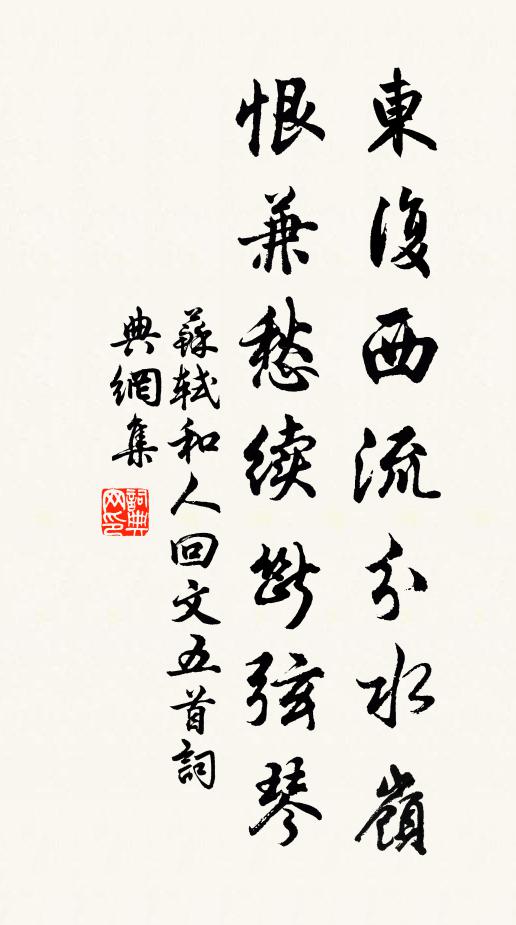 東復西流分水嶺
恨兼愁续斷弦琴
蘇軾和人回文五首詞
典網集
詞典网印